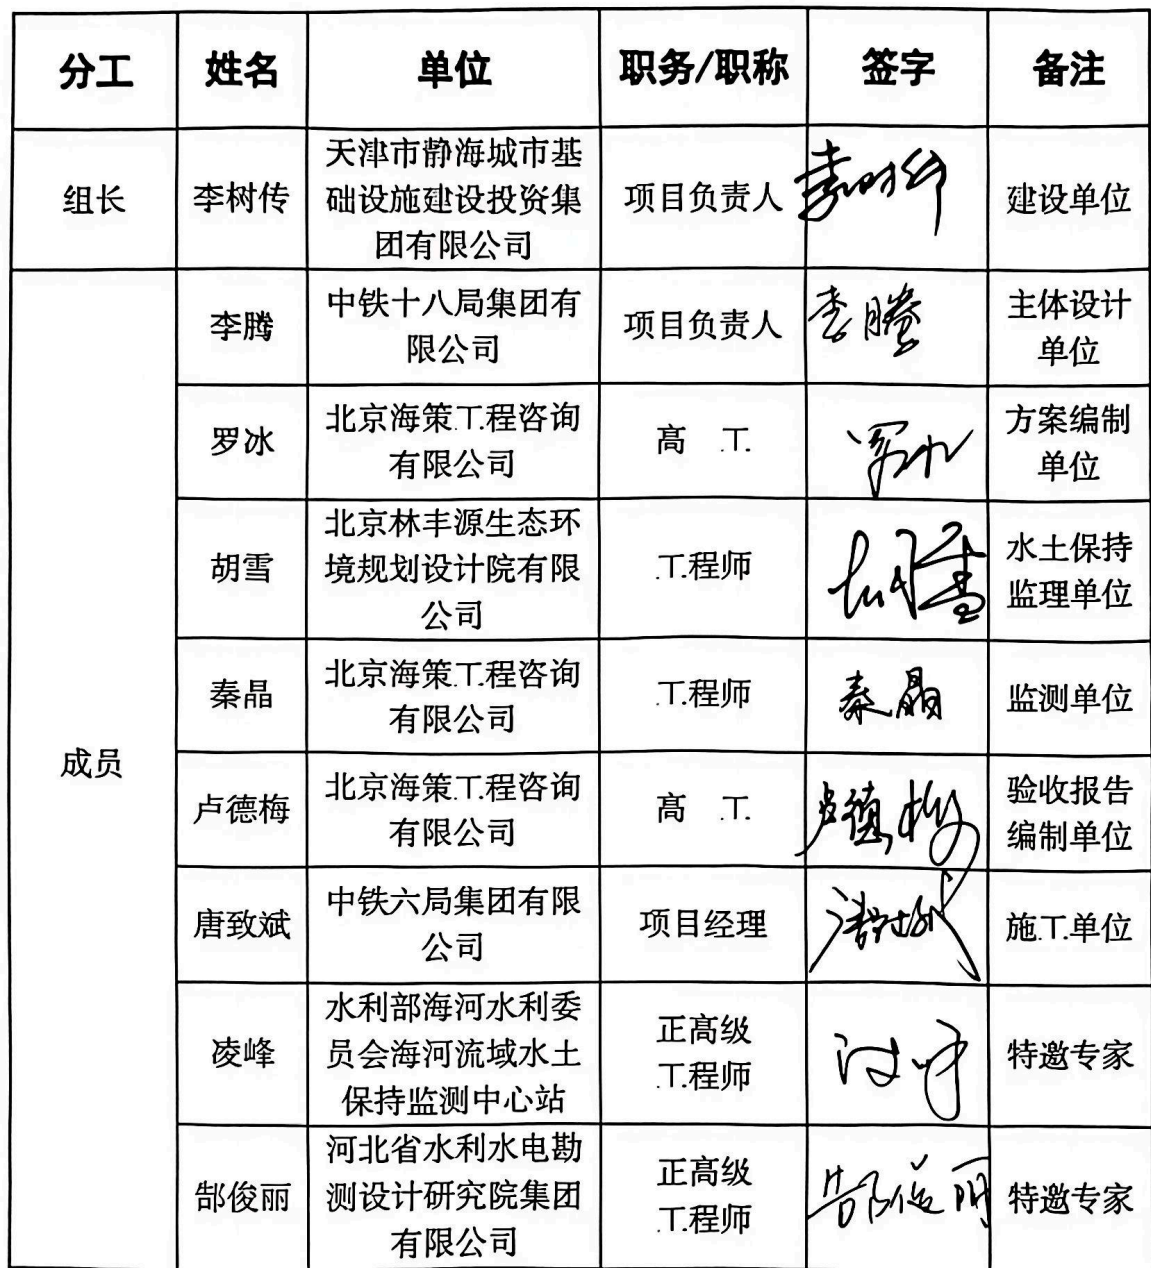 分工 姓名 单位 职务/职称 签字 备注
组长 李树传 天津市静海城市基础设施建设投资集团有限公司 项目负责人 李树传 建设单位
成员
李腾 中铁十八局集团有限公司 项目负责人 李腾 主体设计单位
罗冰 北京海策工程咨询有限公司 高 工 罗冰 方案编制单位
胡雪 北京林丰源生态环境规划设计院有限公司 工程师 胡雪 水土保持监理单位
秦晶 北京海策工程咨询有限公司 工程师 秦晶 监测单位
卢德梅 北京海策工程咨询有限公司 高 工 卢德梅 验收报告编制单位
唐致斌 中铁六局集团有限公司 项目经理 唐致斌 施工单位
凌峰 水利部海河水利委员会海河流域水土保持监测中心站 正高级工程师 凌峰 特邀专家
郜俊丽 河北省水利水电勘测设计研究院集团有限公司 正高级工程师 郜俊丽 特邀专家